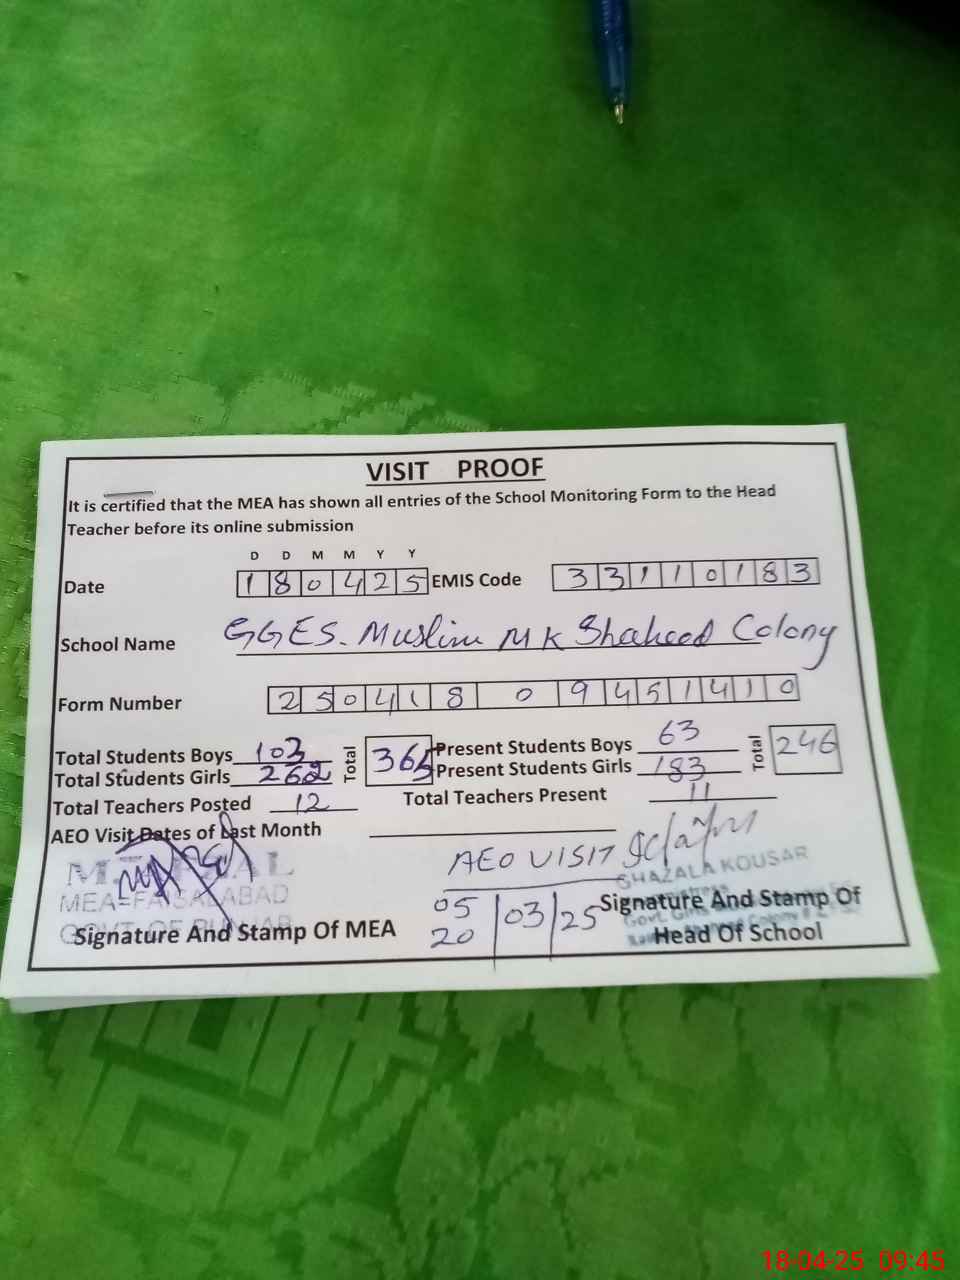 VISIT PROOF
It is certified that the MEA has shown all entries of the School Monitoring Form to the Head
Teacher before its online submission
D D M M Y Y
Date 180425 EMIS Code 33110183
School Name GGES. Muslim MK Shaheed Colony
Form Number 250418 0 9451410
Total Students Boys 103 Total 365 Present Students Boys 63 Total 246
Total Students Girls 262 Present Students Girls 183
Total Teachers Posted 12 Total Teachers Present 11
AEO Visit Dates of Last Month
AEO VISIT
GHAZALA KOUSAR
MEA-FAISALABAD
05 03 25
20
GOVT. OF PUNJAB
Signature And Stamp Of MEA
Signature And Stamp Of
Head Of School
18-04-25 09:45